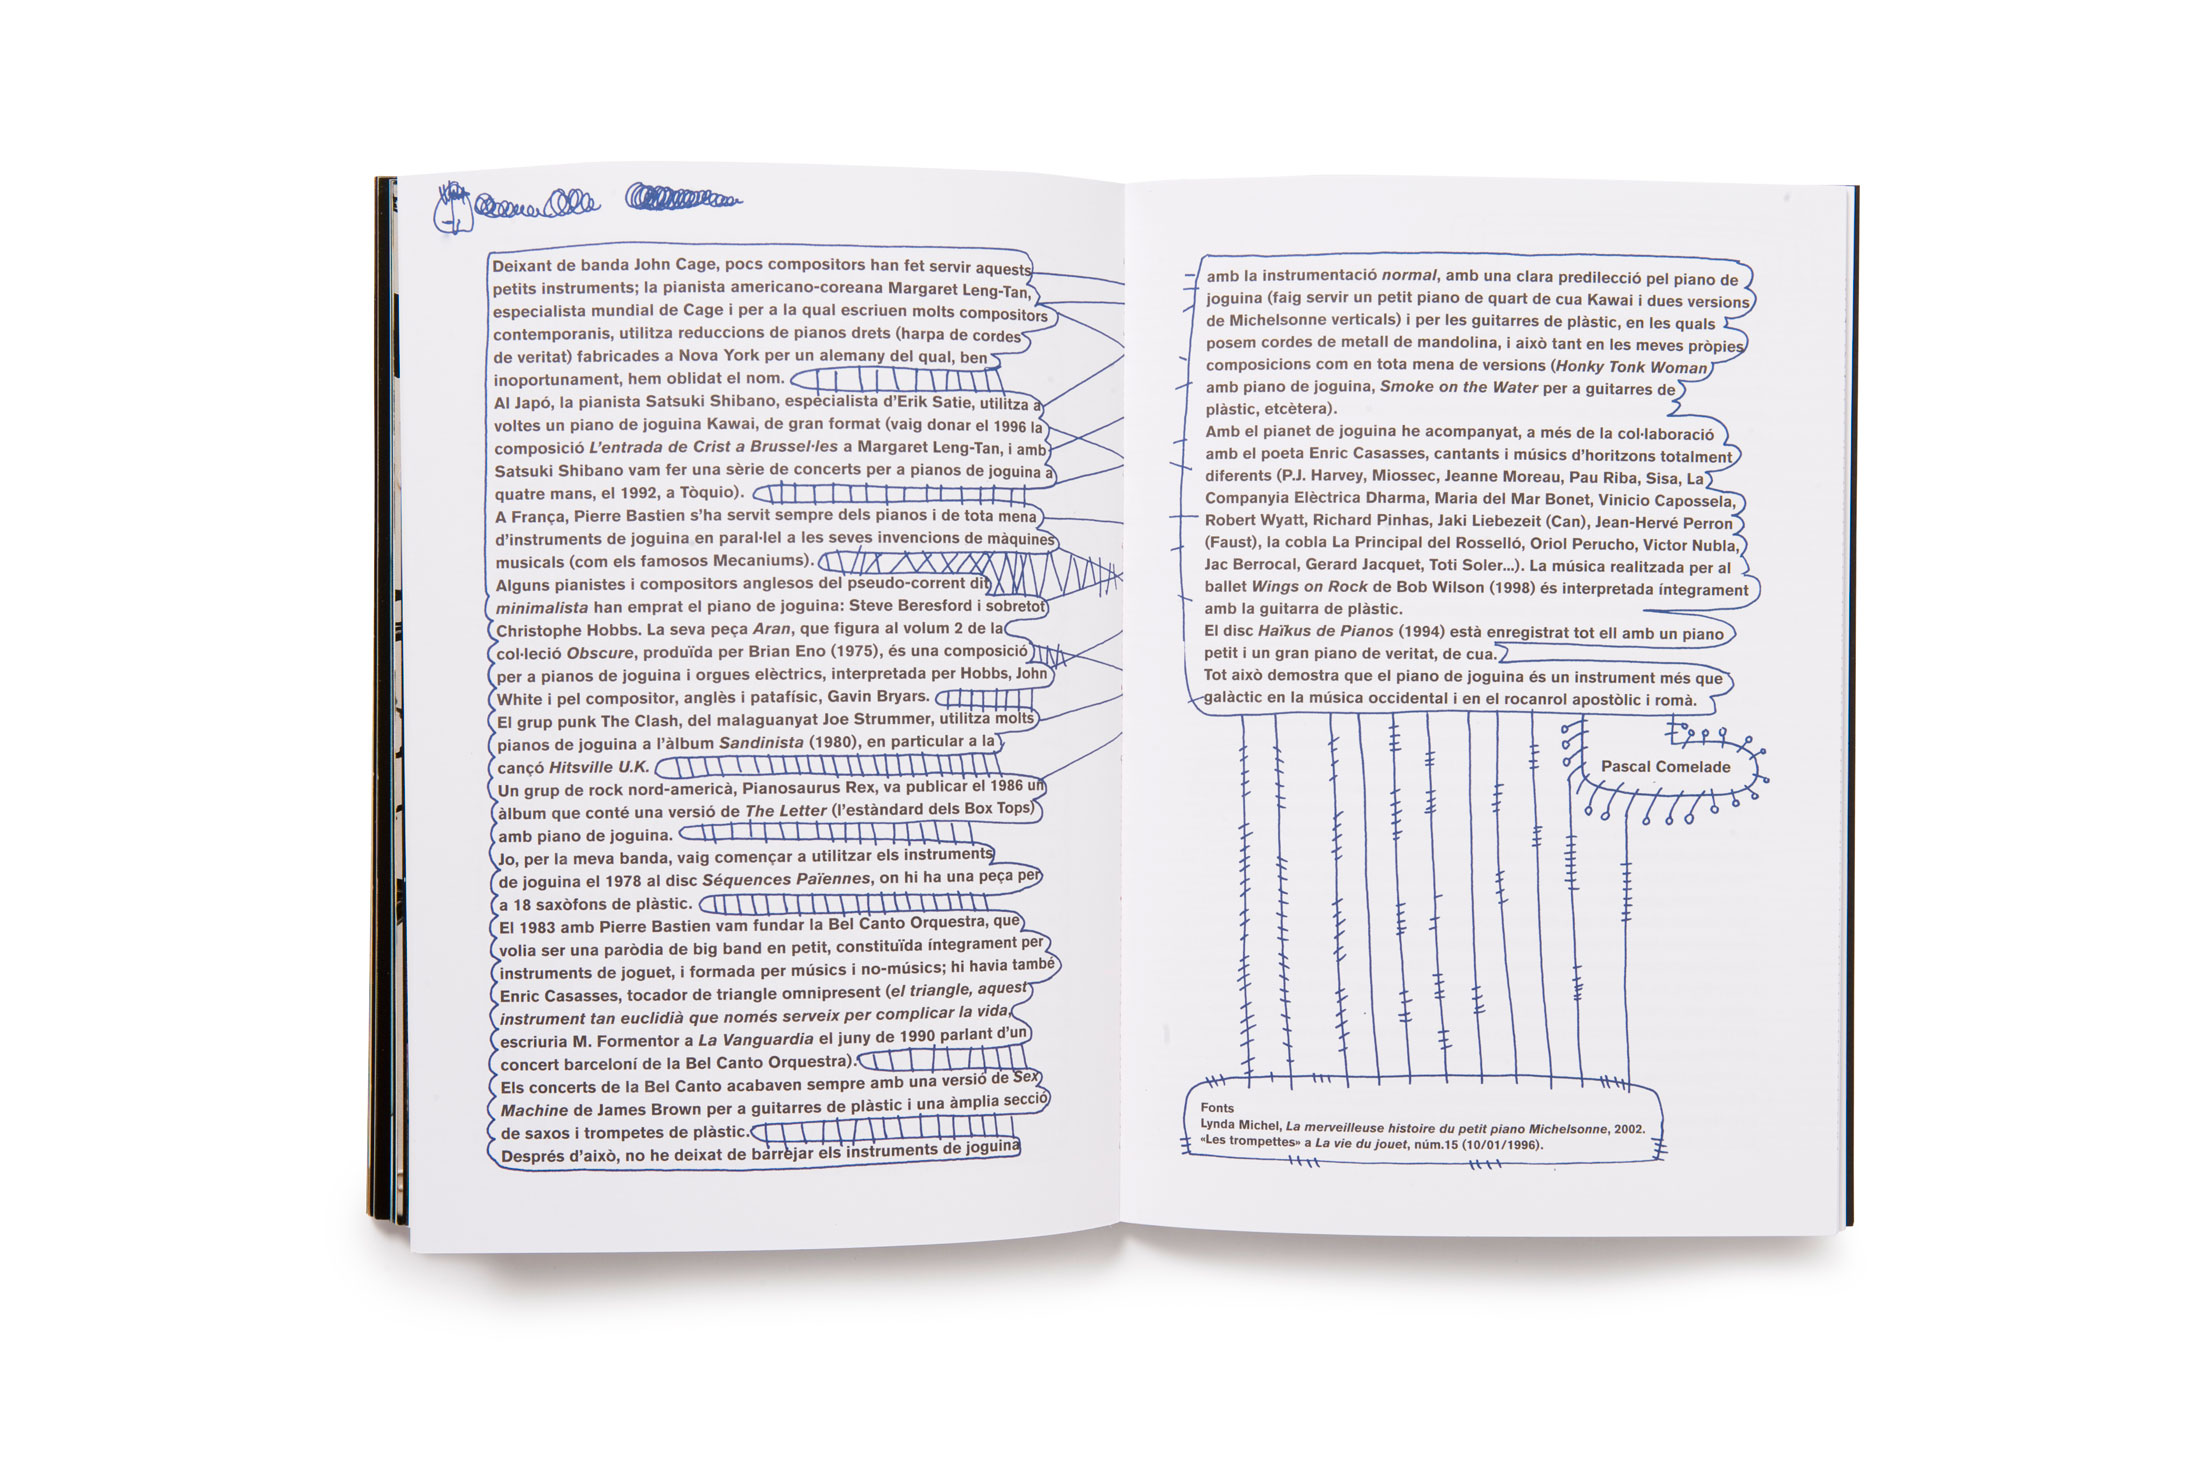 Deixant de banda John Cage, pocs compositors han fet servir aquests
petits instruments; la pianista americano-coreana Margaret Leng-Tan,
especialista mundial de Cage i per a la qual escriuen molts compositors
contemporanis, utilitza reduccions de pianos drets (harpa de cordes
de veritat) fabricades a Nova York per un alemany del qual, ben
inoportunament, hem oblidat el nom.
Al Japó, la pianista Satsuki Shibano, especialista d'Erik Satie, utilitza a
voltes un piano de joguina Kawai, de gran format (vaig donar el 1996 la
composició L'entrada de Crist a Brussel·les a Margaret Leng-Tan, i amb
Satsuki Shibano vam fer una sèrie de concerts per a pianos de joguina a
quatre mans, el 1992, a Tòquio).
A França, Pierre Bastien s'ha servit sempre dels pianos i de tota mena
d'instruments de joguina en paral·lel a les seves invencions de màquines
musicals (com els famosos Mecaniums).
Alguns pianistes i compositors anglesos del pseudo-corrent dit
minimalista han emprat el piano de joguina: Steve Beresford i sobretot
Christophe Hobbs. La seva peça Aran, que figura al volum 2 de la
col·leció Obscure, produïda per Brian Eno (1975), és una composició
per a pianos de joguina i orgues elèctrics, interpretada per Hobbs, John
White i pel compositor, anglès i patafísic, Gavin Bryars.
El grup punk The Clash, del malaguanyat Joe Strummer, utilitza molts
pianos de joguina a l'àlbum Sandinista (1980), en particular a la
cançó Hitsville U.K.
Un grup de rock nord-americà, Pianosaurus Rex, va publicar el 1986 un
àlbum que conté una versió de The Letter (l'estàndard dels Box Tops)
amb piano de joguina.
Jo, per la meva banda, vaig començar a utilitzar els instruments
de joguina el 1978 al disc Séquences Païennes, on hi ha una peça per
a 18 saxòfons de plàstic.
El 1983 amb Pierre Bastien vam fundar la Bel Canto Orquestra, que
volia ser una paròdia de big band en petit, constituïda íntegrament per
instruments de joguet, i formada per músics i no-músics; hi havia també
Enric Casasses, tocador de triangle omnipresent (el triangle, aquest
instrument tan euclidià que només serveix per complicar la vida,
escriuria M. Formentor a La Vanguardia el juny de 1990 parlant d'un
concert barceloní de la Bel Canto Orquestra).
Els concerts de la Bel Canto acabaven sempre amb una versió de Sex
Machine de James Brown per a guitarres de plàstic i una àmplia secció
de saxos i trompetes de plàstic.
Després d'això, no he deixat de barrejar els instruments de joguina
amb la instrumentació normal, amb una clara predilecció pel piano de
joguina (faig servir un petit piano de quart de cua Kawai i dues versions
de Michelsonne verticals) i per les guitarres de plàstic, en les quals
posem cordes de metall de mandolina, i això tant en les meves pròpies
composicions com en tota mena de versions (Honky Tonk Woman
amb piano de joguina, Smoke on the Water per a guitarres de
plàstic, etcètera).
Amb el pianet de joguina he acompanyat, a més de la col·laboració
amb el poeta Enric Casasses, cantants i músics d'horitzons totalment
diferents (P.J. Harvey, Miossec, Jeanne Moreau, Pau Riba, Sisa, La
Companyia Elèctrica Dharma, Maria del Mar Bonet, Vinicio Capossela,
Robert Wyatt, Richard Pinhas, Jaki Liebezeit (Can), Jean-Hervé Perron
(Faust), la cobla La Principal del Rosselló, Oriol Perucho, Victor Nubla,
Jac Berrocal, Gerard Jacquet, Toti Soler...). La música realitzada per al
ballet Wings on Rock de Bob Wilson (1998) és interpretada íntegrament
amb la guitarra de plàstic.
El disc Haïkus de Pianos (1994) està enregistrat tot ell amb un piano
petit i un gran piano de veritat, de cua.
Tot això demostra que el piano de joguina és un instrument més que
galàctic en la música occidental i en el rocanrol apostòlic i romà.
Pascal Comelade
Fonts
Lynda Michel, La merveilleuse histoire du petit piano Michelsonne, 2002.
«Les trompettes» a La vie du jouet, núm.15 (10/01/1996).